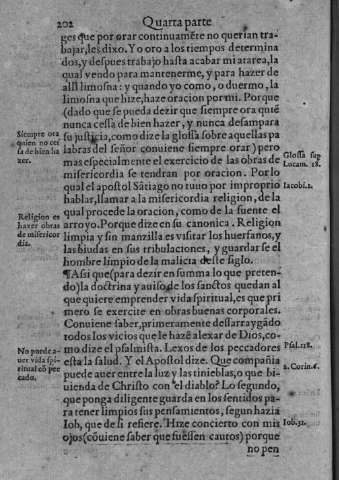 202 Quarta parte
ges que por orar continuamẽte no querian tra-
bajar, les dixo. Y o oro a los tiempos determina
dos, y despues trabajo hasta acabar mi atarea, la
qual vendo para mantenerme, y para hazer de
allí limosna: y quando yo como, o duermo, la
limosna que hize, haze oracion por mi. Porque
(dado que se pueda dezir que siempre ora quiẽ
nunca cessa de bien hazer, y nunca desampara
su justicia, como dize la glossa sobre aquellas pa
labras del señor conuiene siempre orar) pero
mas especialmente el exercicio de las obras de
misericordia se tendran por oracion. Por lo
qual el apostol Sãtiago no tuuo por improprio
hablar, llamar a la misericordia religion, de la
qual procede la oracion, como de la fuente el
arroyo. Porque dize en su canonica. Religion
limpia y sin manzilla es visitar los huerfanos, y
las biudas en sus tribulaciones, y guardar se el
hombre limpio de la malicia deste siglo.
¶Assi que (para dezir en summa lo que preten-
do) la doctrina y auiso de los sanctos quedan al
que quiere emprender vida spiritual, es que pri
mero se exercite en obras buenas corporales.
Conuiene saber, primeramente dessarraygãdo
todos los vicios que le hazẽ alexar de Dios, co-
mo dize el psalmista. Lexos de los peccadores
esta la salud. Y el Apostol dize. Que compañia
puede auer entre la luz y las tinieblas, o que bi-
uienda de Christo con el diablo? Lo segundo,
que ponga diligente guarda en los sentidos pa-
ra tener limpios sus pensamientos, segun hazia
Iob, que de si refiere. Hize concierto con mis
ojos (cõuiene saber que fuessen cautos) porque
no pen
Siempre ora
quien no ces
sa de bien ha
zer.
Religion es
hazer obras
de misericor
dia.
No puede a-
uer vida spi-
ritual cõ pe-
cado.
Glossa sup
Lucam. 18.
Iacobi. 1.
Psal. 118.
2. Corin. 6.
Iob. 31.